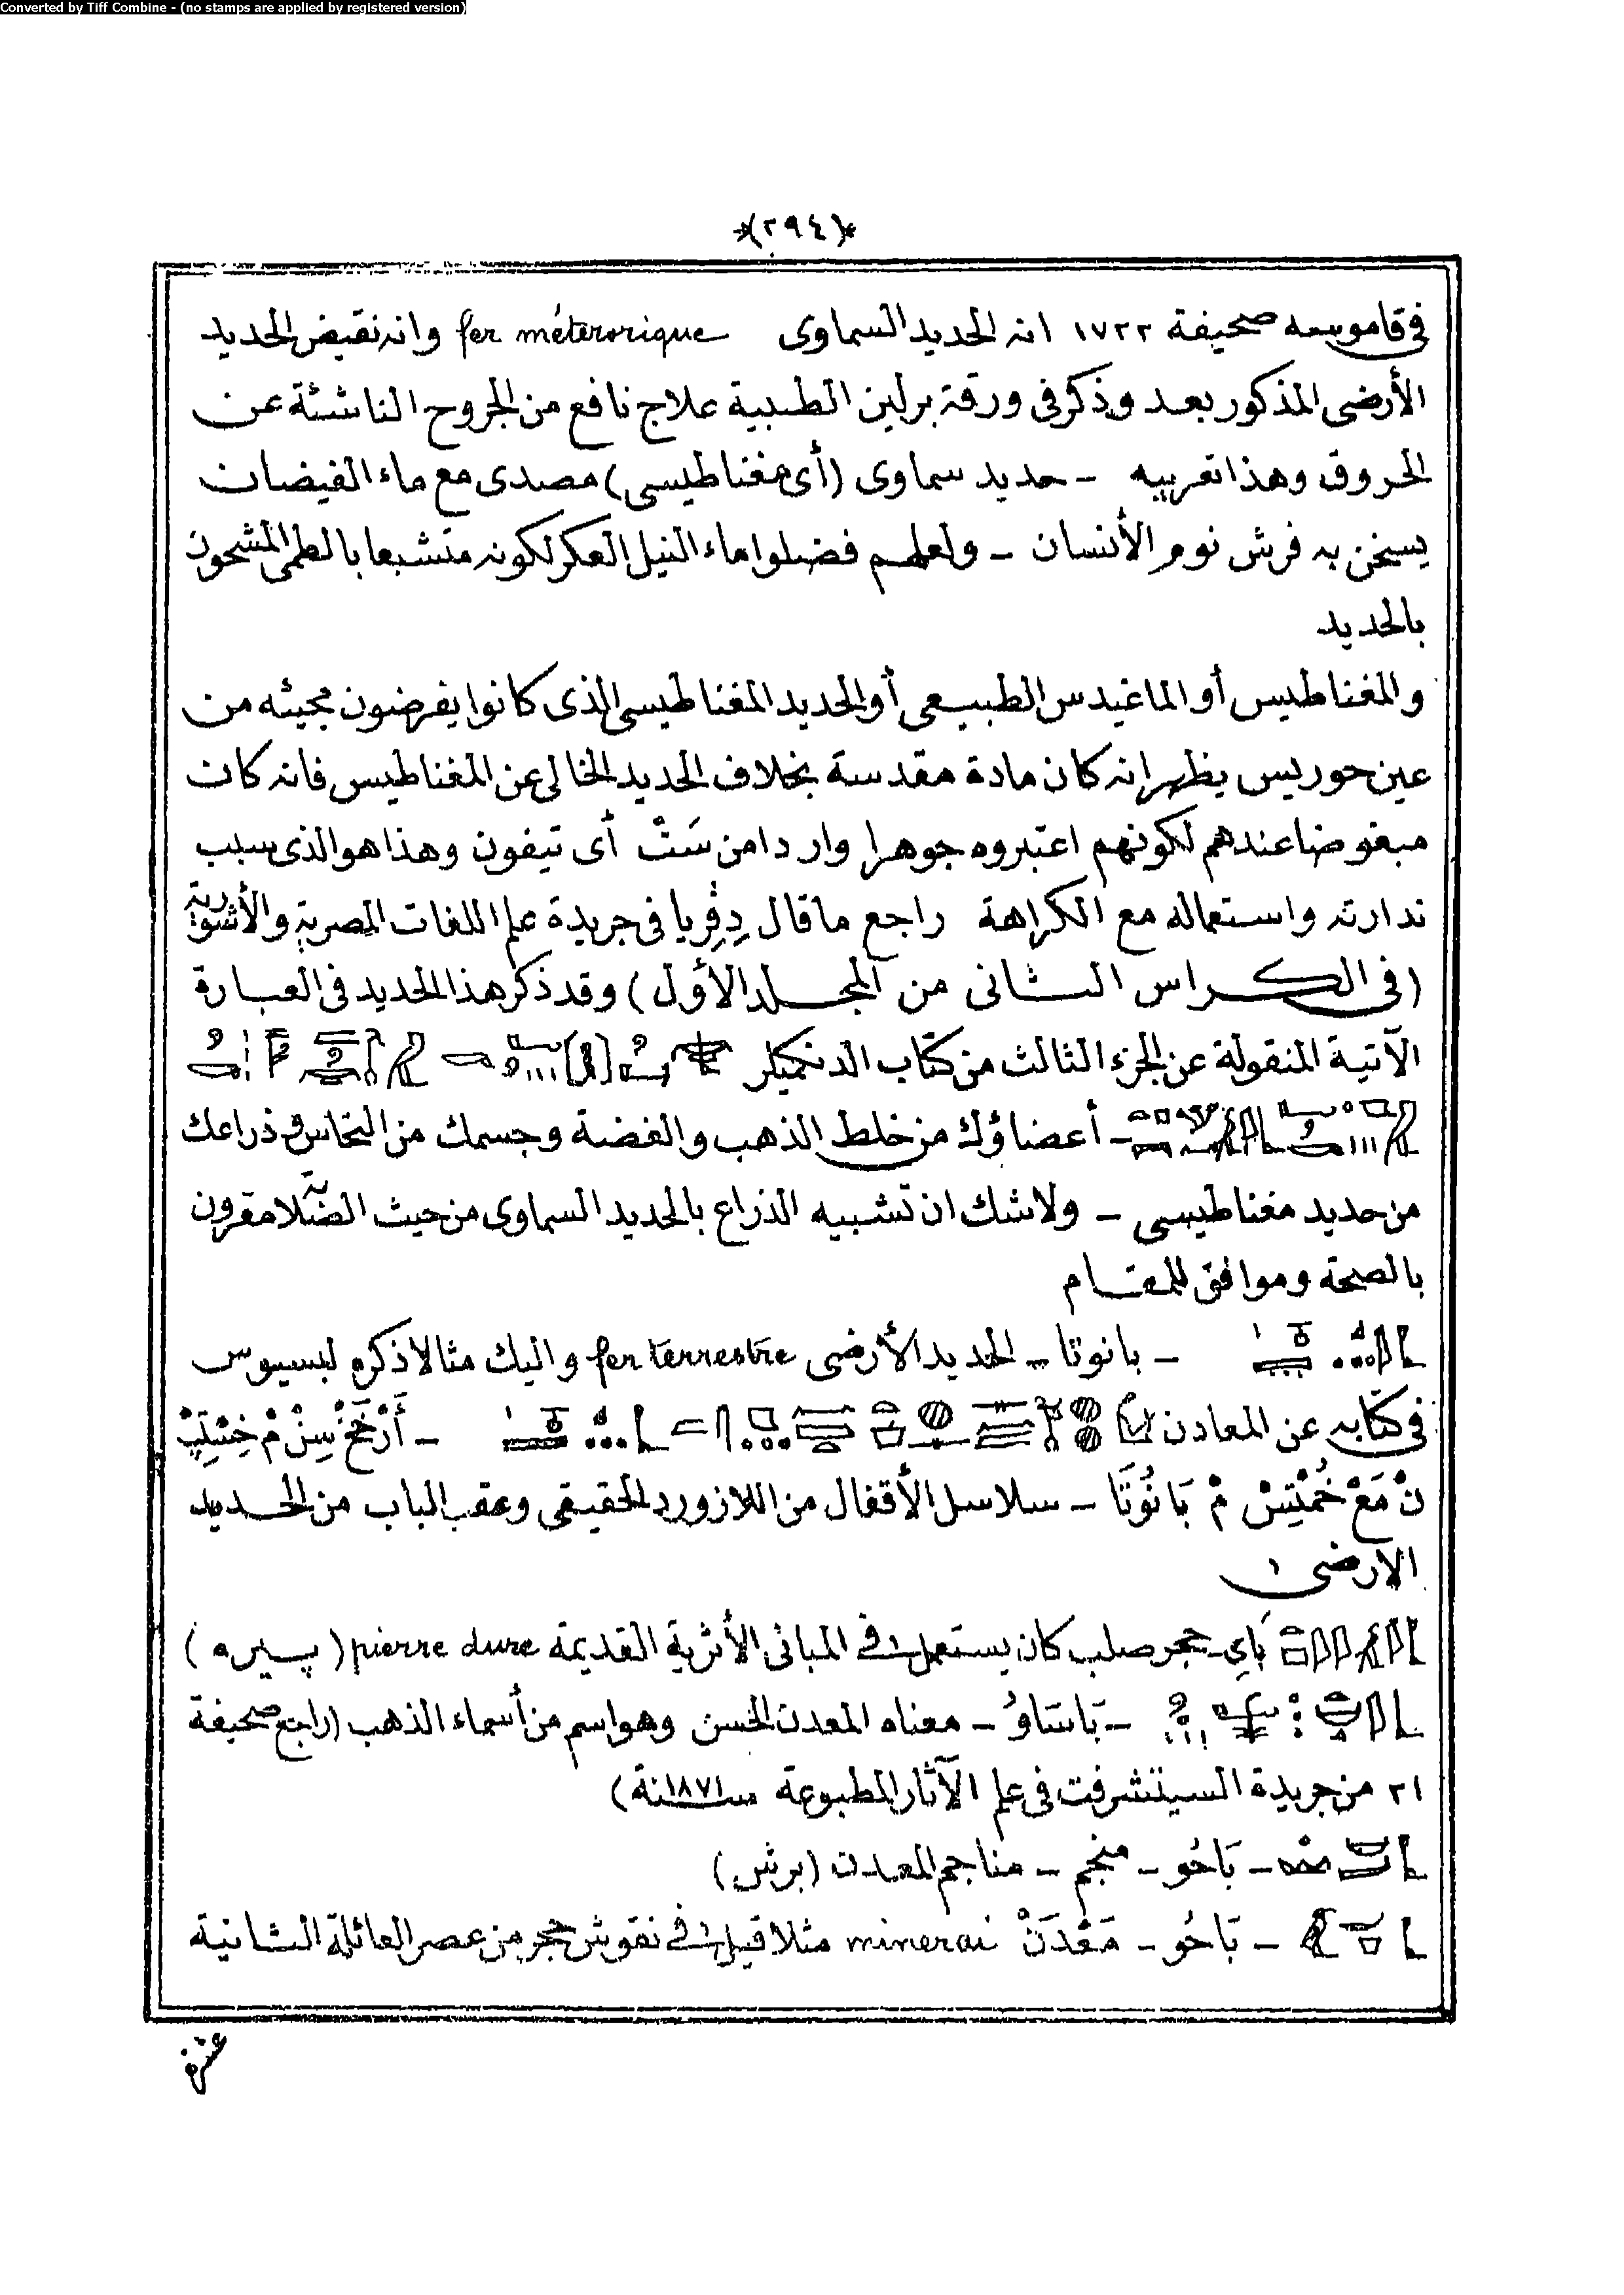 Converted by Tiff Combine - (no stamps are applied by registered version)
*(٢٩٤)*
فى قاموسه صحيفة ١٧٢٢ انه الحديد السماوى fer méterorique وانه نقيض الحديد
الأرضى المذكور بعد وذكر فى ورقة برلين الطبية علاج نافع من الجروح الناشئة عن
الحروق وهذا تعريبه - حديد سماوى (أى مغناطيسى) مصدى مع ماء الفيضان
يسخن به فرش نوم الأنسان - ولعلهم فضلوا ماء النيل العكر لكونه متشبعا بالطمى المشحون
بالحديد
والمغناطيس أو الماغيدس الطبيعى أو الحديد المغناطيسى الذى كانوا يفرضون مجيئه من
عين حوريس يظهر انه كان مادة مقدسة بخلاف الحديد الخالى عن المغناطيس فانه كان
مبغوضا عندهم لكونهم اعتبروه جوهرا واردا من سَتْ أى تيفون وهذا هو الذى سبب
ندارته واستعماله مع الكراهة راجع ما قال دِڤِريا فى جريدة علم اللغات المصرية والأشورية
(فى الكراس الثانى من المجلد الأول) وقد ذكر هذا الحديد فى العبارة
الآتية المنقولة عن الجزء الثالث من كتاب الدنكميلر
- أعضاؤك من خلط الذهب والفضة وجسمك من النحاس وذراعك
من حديد مغناطيسى - ولا شك ان تشبيه الذراع بالحديد السماوى من حيث الصلابة مقرون
بالصحة وموافق للمقام
- بانوتا - الحديد الأرضى fer terrestre واليك مثالا ذكره لبسيوس
فى كتابه عن المعادن -
نْ مَعْ خُمْتِسْ مْ بَانُوتَا - سلاسل الأقفال من اللازورد الحقيقى وعقب الباب من الحديد
الارضى
بَاىِ - حجر صلب كان يستعمل فى المبانى الأثرية القديمة pierre dure (پييره)
- بَاسَاوُ - معناه المعدن الحسن وهو اسم من أسماء الذهب (راجع صحيفة
٢١ من جريدة السيتشرفت فى علم الآثار المطبوعة سنة ١٨٧١)
- بَاحُو - منجم - مناجم المعدن (برش)
- بَاحُو - مَعْدَنْ minerai مثلا قيل فى نقوش حجر من عصر العائلة الثانية
عشرة